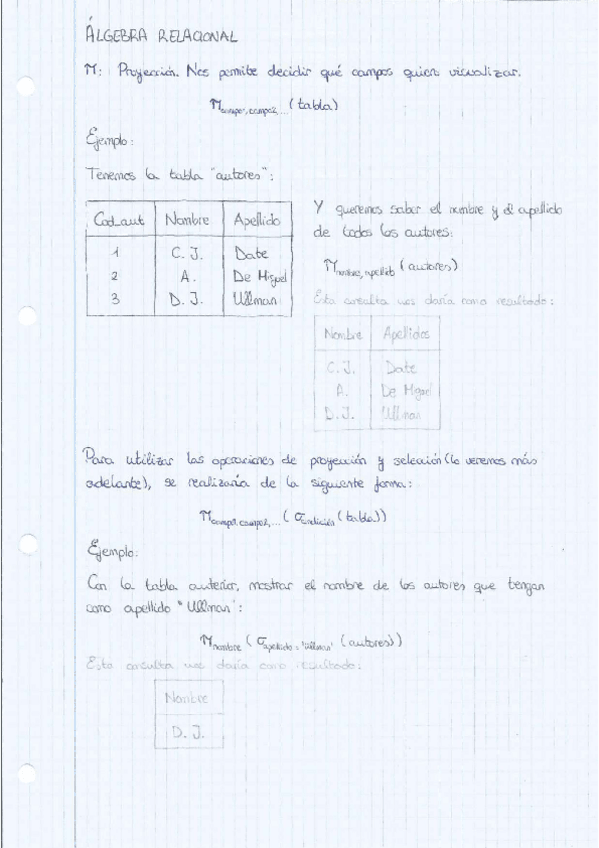 ÁLGEBRA RELACIONAL
π: Proyección. Nos permite decidir qué campos quien visualizar.
π campo1, campo2, ... (tabla)
Ejemplo:
Tenemos la tabla "autores":
Cod_aut Nombre Apellido
1 C. J. Date
2 A. De Miguel
3 D. J. Ullman
Y queremos saber el nombre y el apellido
de todos los autores:
π nombre, apellido (autores)
Esta consulta nos daría como resultado:
Nombre Apellidos
C. J. Date
A. De Miguel
D. J. Ullman
Para utilizar las operaciones de proyección y selección (lo veremos más
adelante), se realizaría de la siguiente forma:
π campo1, campo2, ... (σ condición (tabla))
Ejemplo:
Con la tabla anterior, mostrar el nombre de los autores que tengan
como apellido "Ullman":
π nombre (σ apellido = 'Ullman' (autores))
Esta consulta nos daría como resultado:
Nombre
D. J.